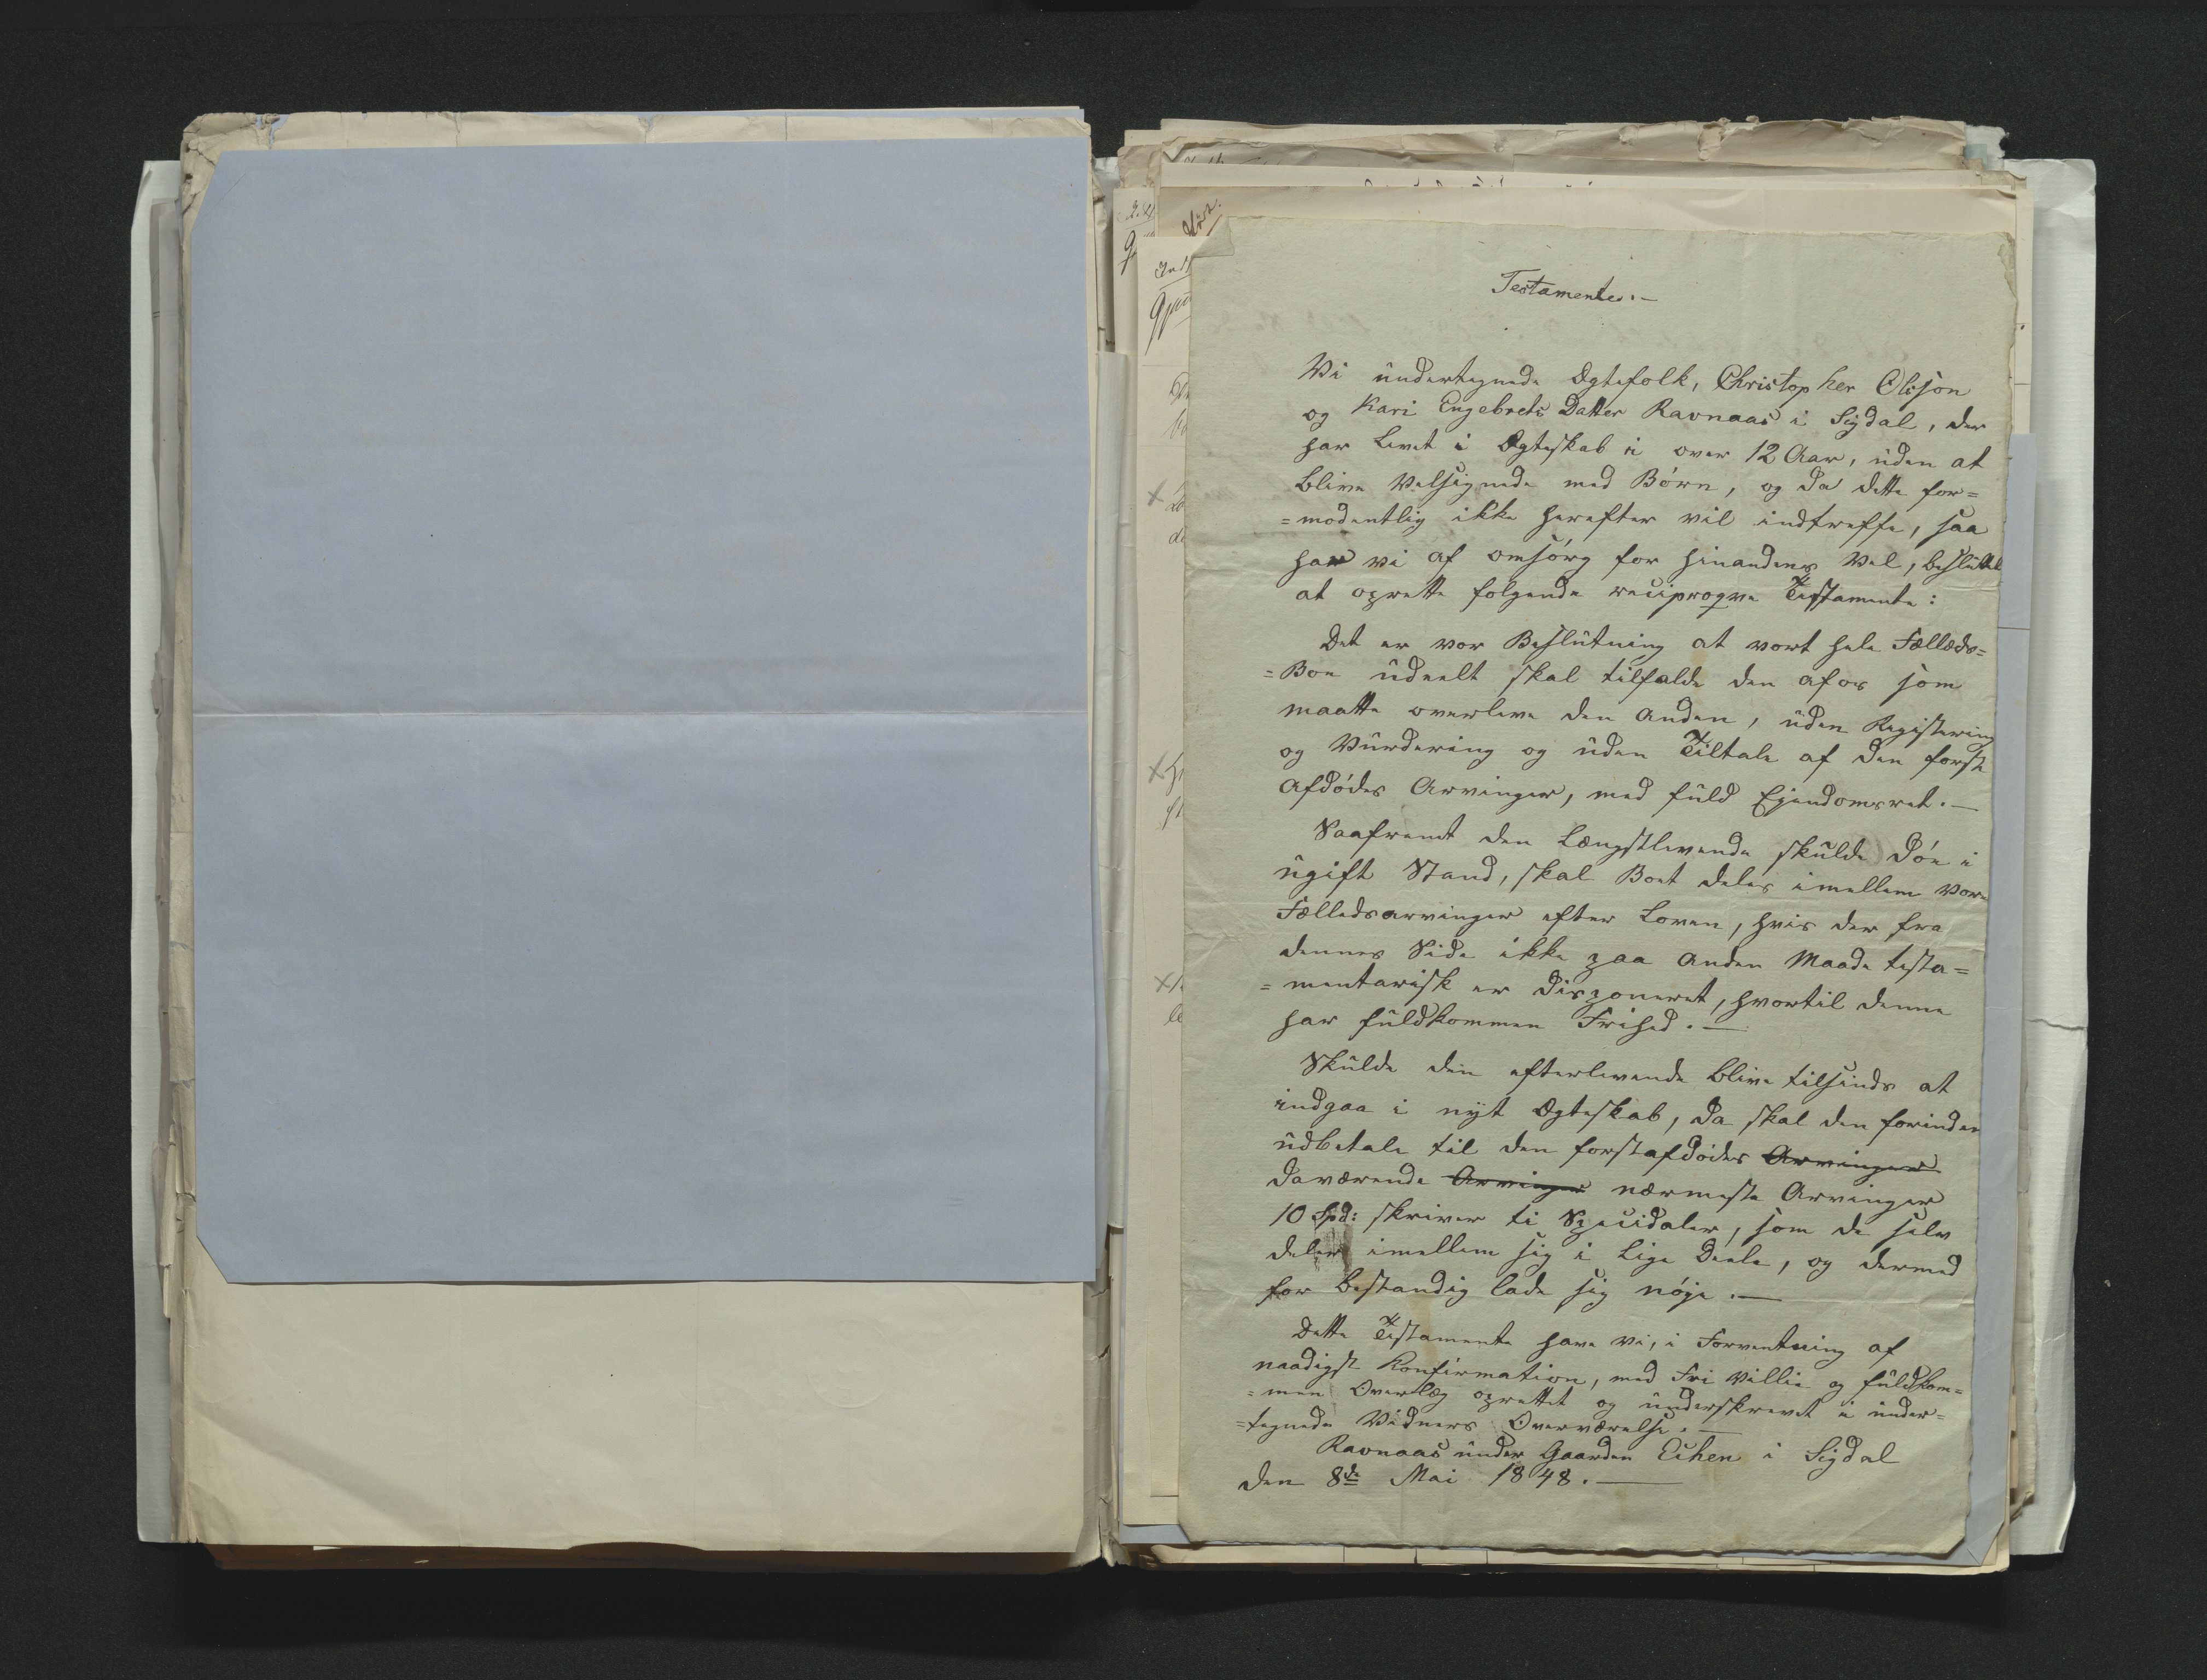 Testamente.—
Vi undertegnede Ægtefolk, Christopher Olsøn
og Kari Engebrets Datter Ravnaas i Sigdal, der
har levet i Ægteskab i over 12 Aar, uden at
blive velsignede med Børn, og da dette for=
=modentlig ikke herefter vil indtreffe, saa
har vi af omsørg for hinandens Vel, besluttet
at oprette følgende reciproqve Testamente:
Det er vor Beslutning at vort hele Fælleds=
=Boe udeelt skal tilfalde den afos som
maatte overleve den anden, uden Registering
og Vurdering og uden Tiltale af den først
afdødes Arvinger, med fuld Ejendomsret.—
Saafremt den Længstlevende skulde døe i
ugift Stand, skal Boet deles imellem vore
Fælledsarvinger efter Loven, hvis der fra
dennes Side ikke paa anden Maade testa=
=mentarisk er disponeret, hvortil denne
har fuldkommen Frihed.—
Skulde den efterlevende blive tilsinds at
indgaa i nyt Ægteskab, da skal den forinden
udbetale til den førstafdødes Arvinger
daværende Arvinger nærmeste Arvinger
10 Spd: skriver ti Specidaler, som de selv
deler imellem sig i lige Deele, og dermed
for bestandig lade sig nøje.—
Dette Testamente have vi, i Forventning af
naadigst Konfirmation, med Fri Villie og fuldkom=
=men Overlæg oprettet og underskrevet i under=
=tegnede Vidners Overværelse.—
Ravnaas under Gaarden Eihen i Sigdal
den 8de Mai 1848.—